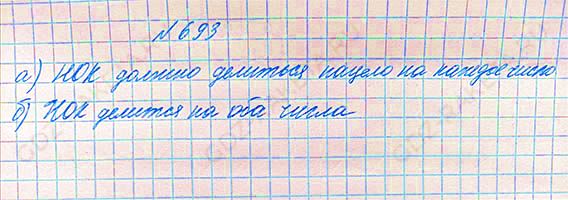 №693
а) НОК должно делиться нацело на каждое число
б) НОК делится на оба числа